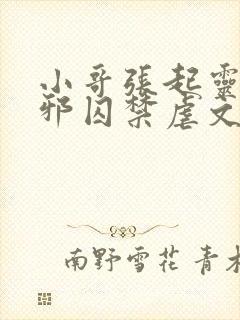 小哥張起靈
邪囚禁虐文
南野雪花 青木